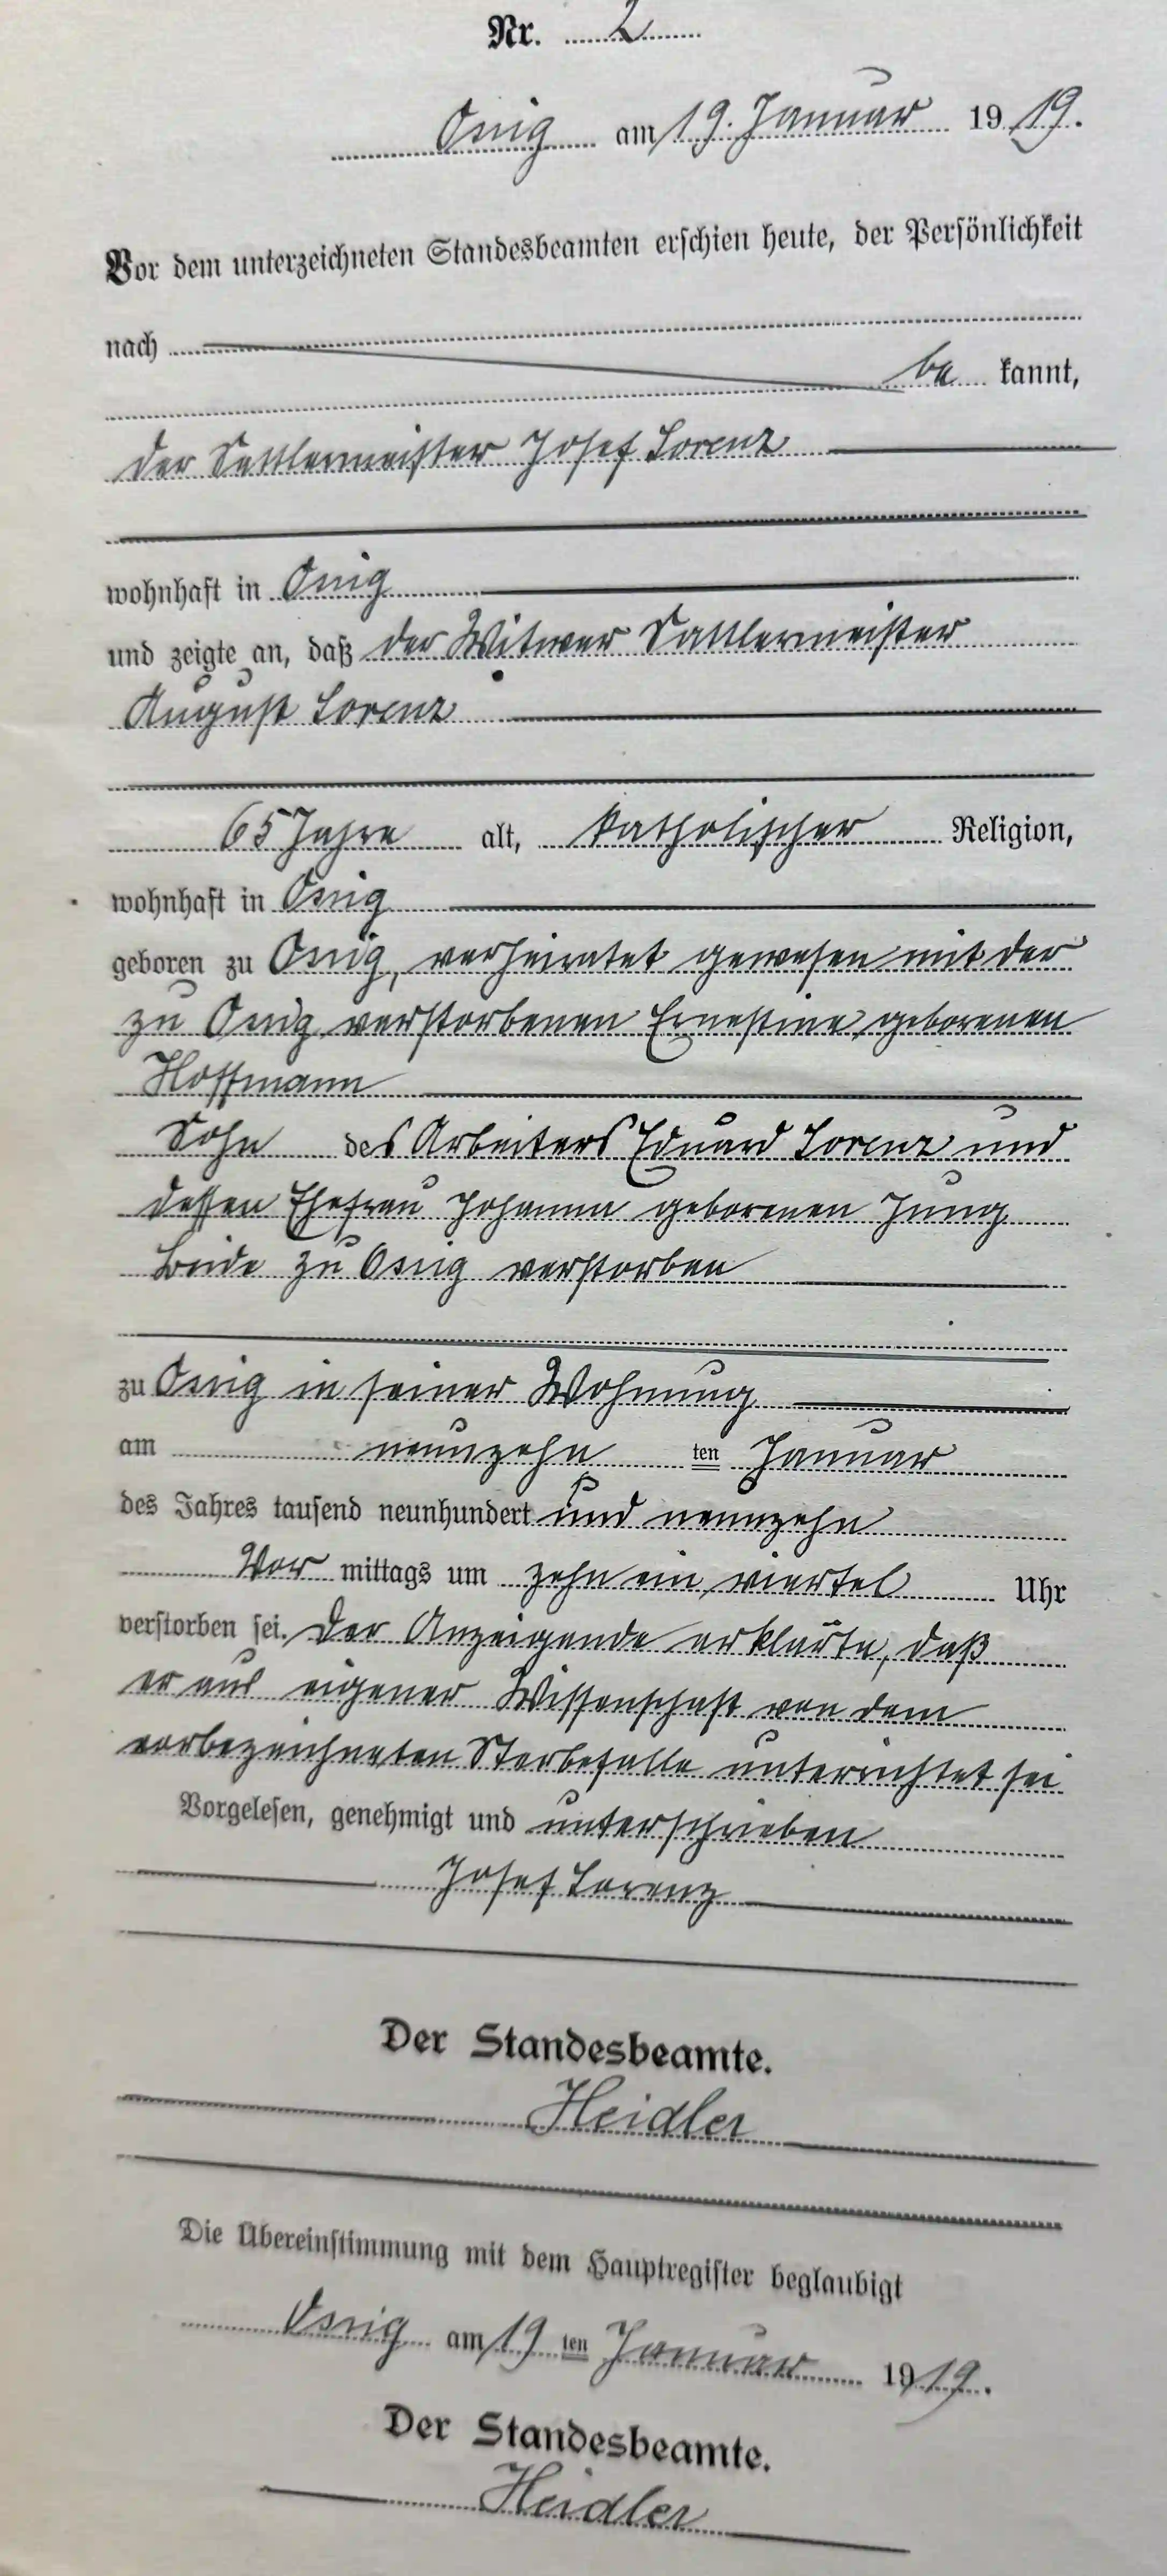 Nr. 2
Ossig am 19. Januar 1919.
Vor dem unterzeichneten Standesbeamten erschien heute, der Persönlichkeit
nach
be kannt,
der Sattlermeister Josef Lorenz
wohnhaft in Ossig
und zeigte an, daß der Witwer Sattlermeister
August Lorenz
65 Jahre alt, katholischer Religion,
wohnhaft in Ossig
geboren zu Ossig, verheiratet gewesen mit der
zu Ossig verstorbenen Ernestine geborenen
Hoffmann
Sohn des Arbeiters Eduard Lorenz und
dessen Ehefrau Johanna geborenen Jung
beide zu Ossig verstorben
zu Ossig in seiner Wohnung
am neunzehn ten Januar
des Jahres tausend neunhundert und neunzehn
Vor mittags um zehn ein viertel Uhr
verstorben sei. Der Anzeigende erklärte, daß
er aus eigener Wissenschaft von dem
vorbezeichneten Sterbefalle unterrichtet sei
Vorgelesen, genehmigt und unterschrieben
Josef Lorenz
Der Standesbeamte.
Heidler
Die Übereinstimmung mit dem Hauptregister beglaubigt
Ossig am 19 ten Januar 1919.
Der Standesbeamte.
Heidler